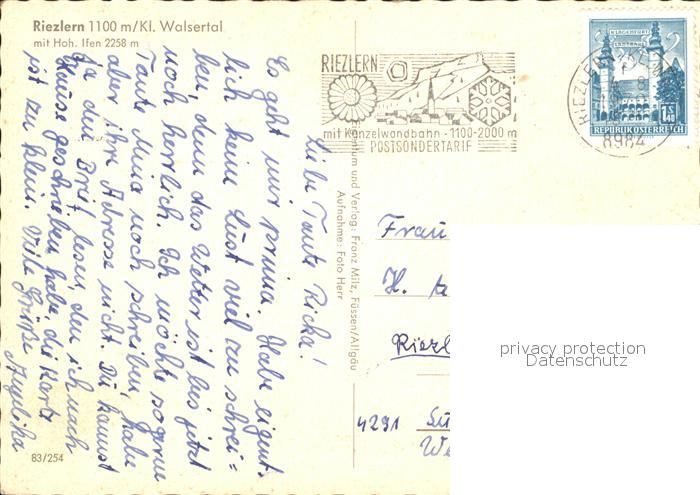 Riezlern 1100 m/Kl. Walsertal
mit Hoh. Ifen 2258 m
Liebe Tante Ricka!
Es geht mir prima. Habe eigent-
lich keine Lust viel zu schrei=
ben, denn das Wetter ist bis jetzt
noch herrlich. Ich möchte sogern
Tante Mina noch schreiben, habe
aber ihre Adresse nicht. Du kannst
ja den Brief lesen den ich nach
Hause geschrieben habe, die Karte
ist zu klein. Viele Grüße
Angelika
83/254
Eigentum und Verlag: Franz Milz, Füssen/Allgäu
Aufnahme: Foto Herr
RIEZLERN
mit Kanzelwandbahn - 1100-2000 m
POSTSONDERTARIF
KLAGENFURT
LANDHAUS
1.40
REPUBLIK ÖSTERREICH
RIEZLERN
8984
Frau
H.
Riezl
4291
privacy protection
Datenschutz